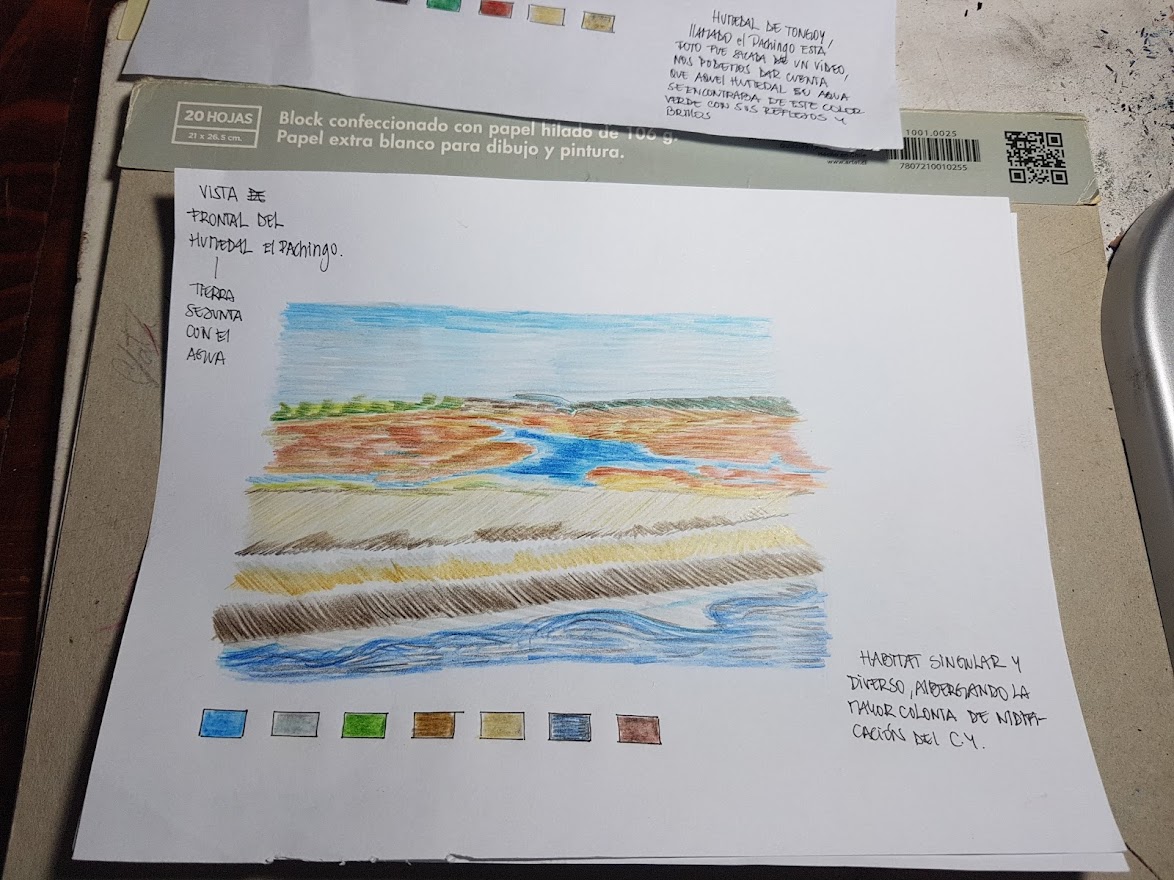 HUMEDAL DE TONGOY,
LLAMADO el Pachingo ESTA
FOTO FUE SACADA DE UN VIDEO,
NOS PODEMOS DAR CUENTA
QUE AQUEL HUMEDAL EN AGUA
SE ENCONTRABA DE ESTE COLOR
VERDE CON SUS REFLEJOS Y
BRILLOS
20 HOJAS
21 x 26.5 cm.
Block confeccionado con papel hilado de 106 g.
Papel extra blanco para dibujo y pintura.
1001.0025
7807210010255
VISTA DE
FRONTAL DEL
HUMEDAL El PAChingo.
TIERRA
SE JUNTA
CON El
AGUA
HABITAT SINGULAR Y
DIVERSO, AlbERGANDO LA
MAYOR COLONIA DE NIDIFI-
CACIÓN DEL C.Y.